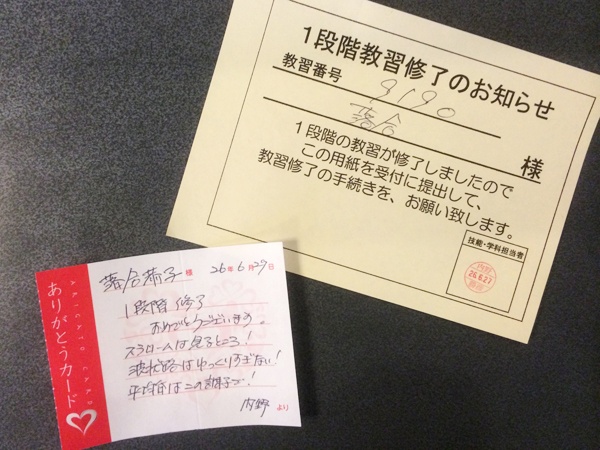 1段階教習修了のお知らせ
教習番号 9190
落合 様
1段階の教習が修了しましたので
この用紙を受付に提出して、
教習修了の手続きを、お願い致します。
技能・学科担当者
内野
26.6.27
ARIGATO CARD
ありがとうカード
落合 様 26年6月27日
1段階修了
おめでとうございます。
スラロームは見るところ!
波状路はゆっくりすぎない!
平均台はこの調子で!
内野 より